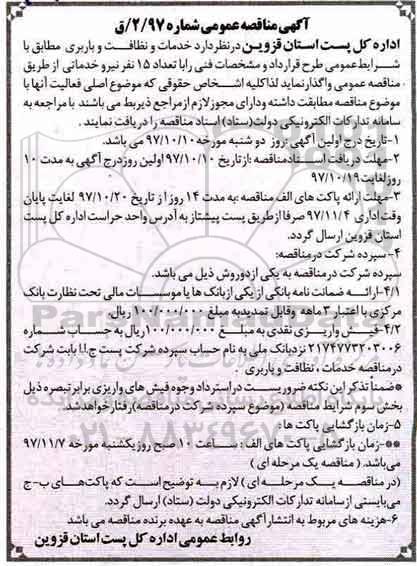 آگهی مناقصه عمومی شماره ۲/۹۷/ق
اداره کل پست استان قزوین در نظر دارد خدمات و نظافت و باربری مطابق با
شرایط عمومی طرح قرارداد و مشخصات فنی را با تعداد ۱۵ نفر نیرو خدماتی از طریق
مناقصه عمومی واگذار نماید لذا کلیه اشخاص حقوقی که موضوع اصلی فعالیت آنها با
موضوع مناقصه مطابقت داشته و دارای مجوز لازم از مراجع ذیربط می باشند با مراجعه به
سامانه تدارکات الکترونیکی دولت(ستاد) اسناد مناقصه را دریافت نمایند .
۱-تاریخ درج اولین آگهی :روز دو شنبه مورخه ۹۷/۱۰/۱۰ می باشد.
۲-مهلت دریافت اسناد مناقصه :از تاریخ ۹۷/۱۰/۱۰ اولین روز درج آگهی به مدت ۱۰
روز لغایت ۹۷/۱۰/۱۹
۳-مهلت ارائه پاکت های الف مناقصه :به مدت ۱۴ روز از تاریخ ۹۷/۱۰/۲۰ لغایت پایان
وقت اداری ۹۷/۱۱/۴ صرفا از طریق پست پیشتاز به آدرس واحد حراست اداره کل پست
استان قزوین ارسال گردد.
۴-سپرده شرکت در مناقصه:
سپرده شرکت در مناقصه به یکی از دو روش ذیل می باشد.
۴/۱-ارائه ضمانت نامه بانکی از یکی از بانک ها یا موسسات مالی تحت نظارت بانک
مرکزی با اعتبار ۳ ماهه وقابل تمدید به مبلغ ۱۰۰/۰۰۰/۰۰۰ ریال
۴/۲-فیش واریزی نقدی به مبلغ ۱۰۰/۰۰۰/۰۰۰ریال به حساب شماره
۲۱۷۴۷۷۳۲۰۳۰۰۶ نزد بانک ملی به نام حساب سپرده شرکت پست ج.ا.ا بابت شرکت
در مناقصه خدمات ، نظافت و باربری
*ضمناً تذکر این نکته ضروریست در استرداد وجوه فیش های واریزی برابر تبصره ذیل
بخش سوم شرایط مناقصه (موضوع سپرده شرکت در مناقصه)رفتار خواهد شد.
۵-زمان بازگشایی پاکت ها :
**-زمان بازگشایی پاکت های الف : ساعت ۱۰ صبح روز یکشنبه مورخه ۹۷/۱۱/۷
می باشد . ( مناقصه یک مرحله ای )
(در مناقصه یک مرحله ای ) لازم به توضیح است که پاکت های ب-ج
می بایستی از سامانه تدارکات الکترونیکی دولت (ستاد) ارسال گردد.
۶-هزینه های مربوط به انتشار آگهی مناقصه به عهده برنده مناقصه می باشد
روابط عمومی اداره کل پست استان قزوین